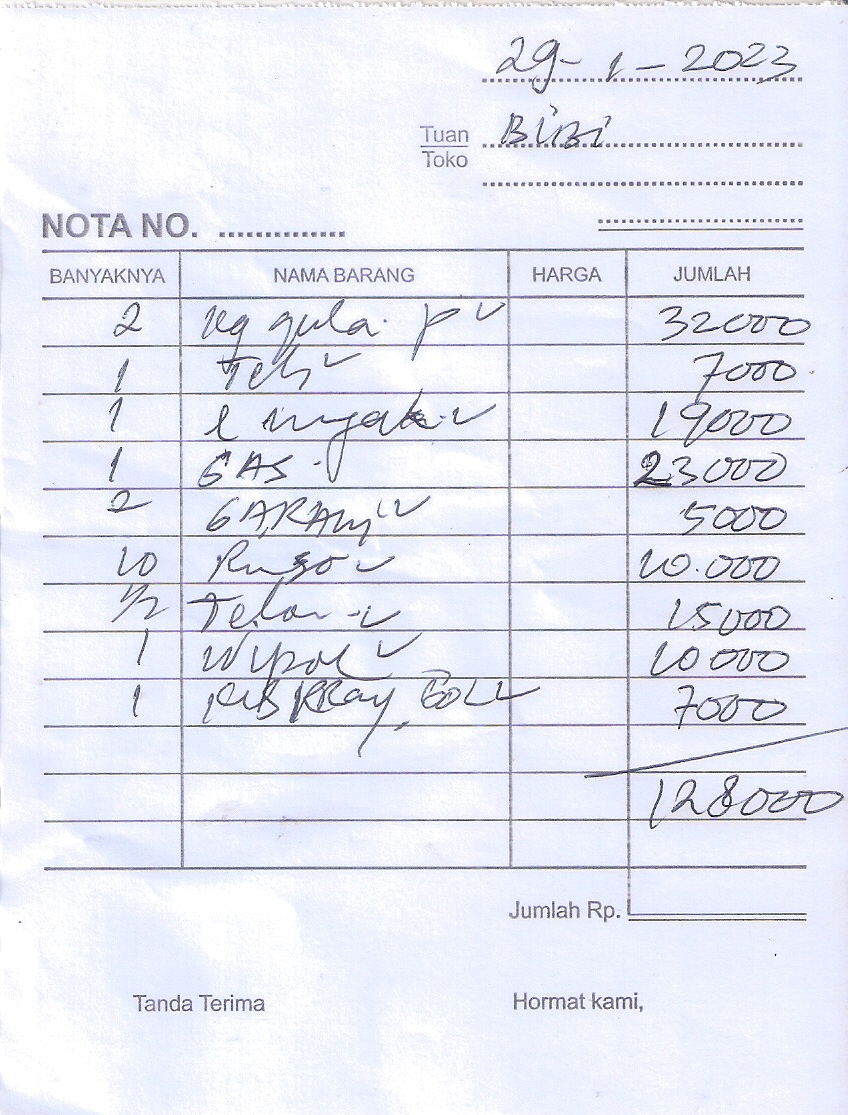 29-1-2023
Tuan Toko BiBi
NOTA NO. ..............
BANYAKNYA NAMA BARANG HARGA JUMLAH
2 kg gula p 32000
1 Teh 7000
1 l 19000
1 GAS 23000
2 GARAM 5000
10 10.000
1/2 Telor 15000
1 Wipol 10000
1 7000
128000
Jumlah Rp.
Tanda Terima Hormat kami,